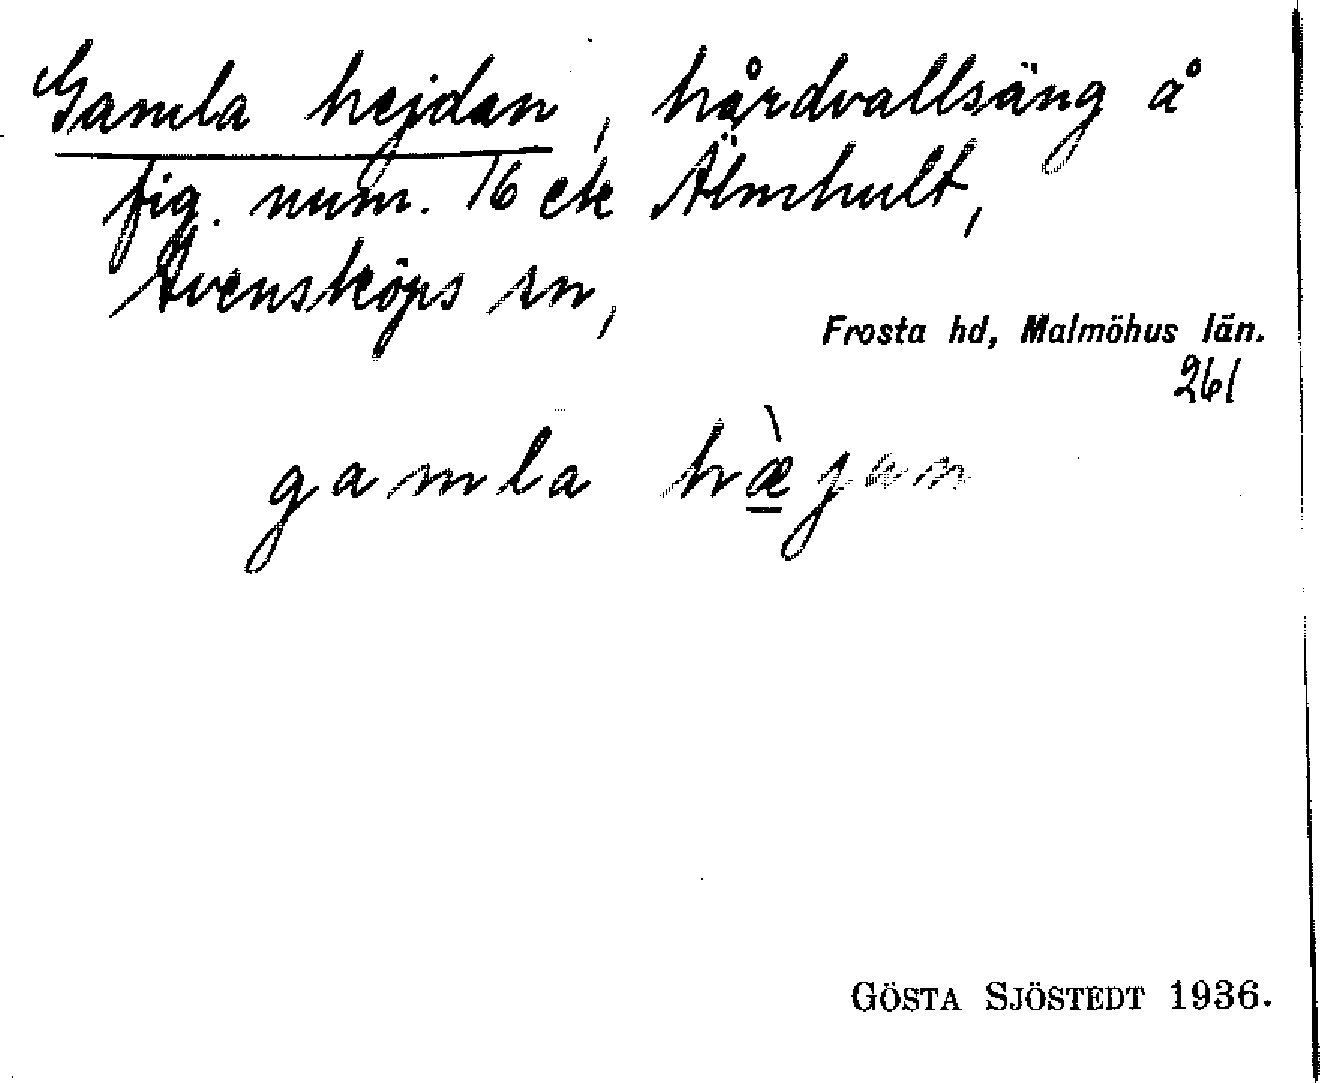 Gamla hejdan, hårdvallsäng å
fig. num. 16 ek Älmhult,
Svensköps sn,
Frosta hd, Malmöhus län.
261
gamla hæ̀jan
GÖSTA SJÖSTEDT 1936.